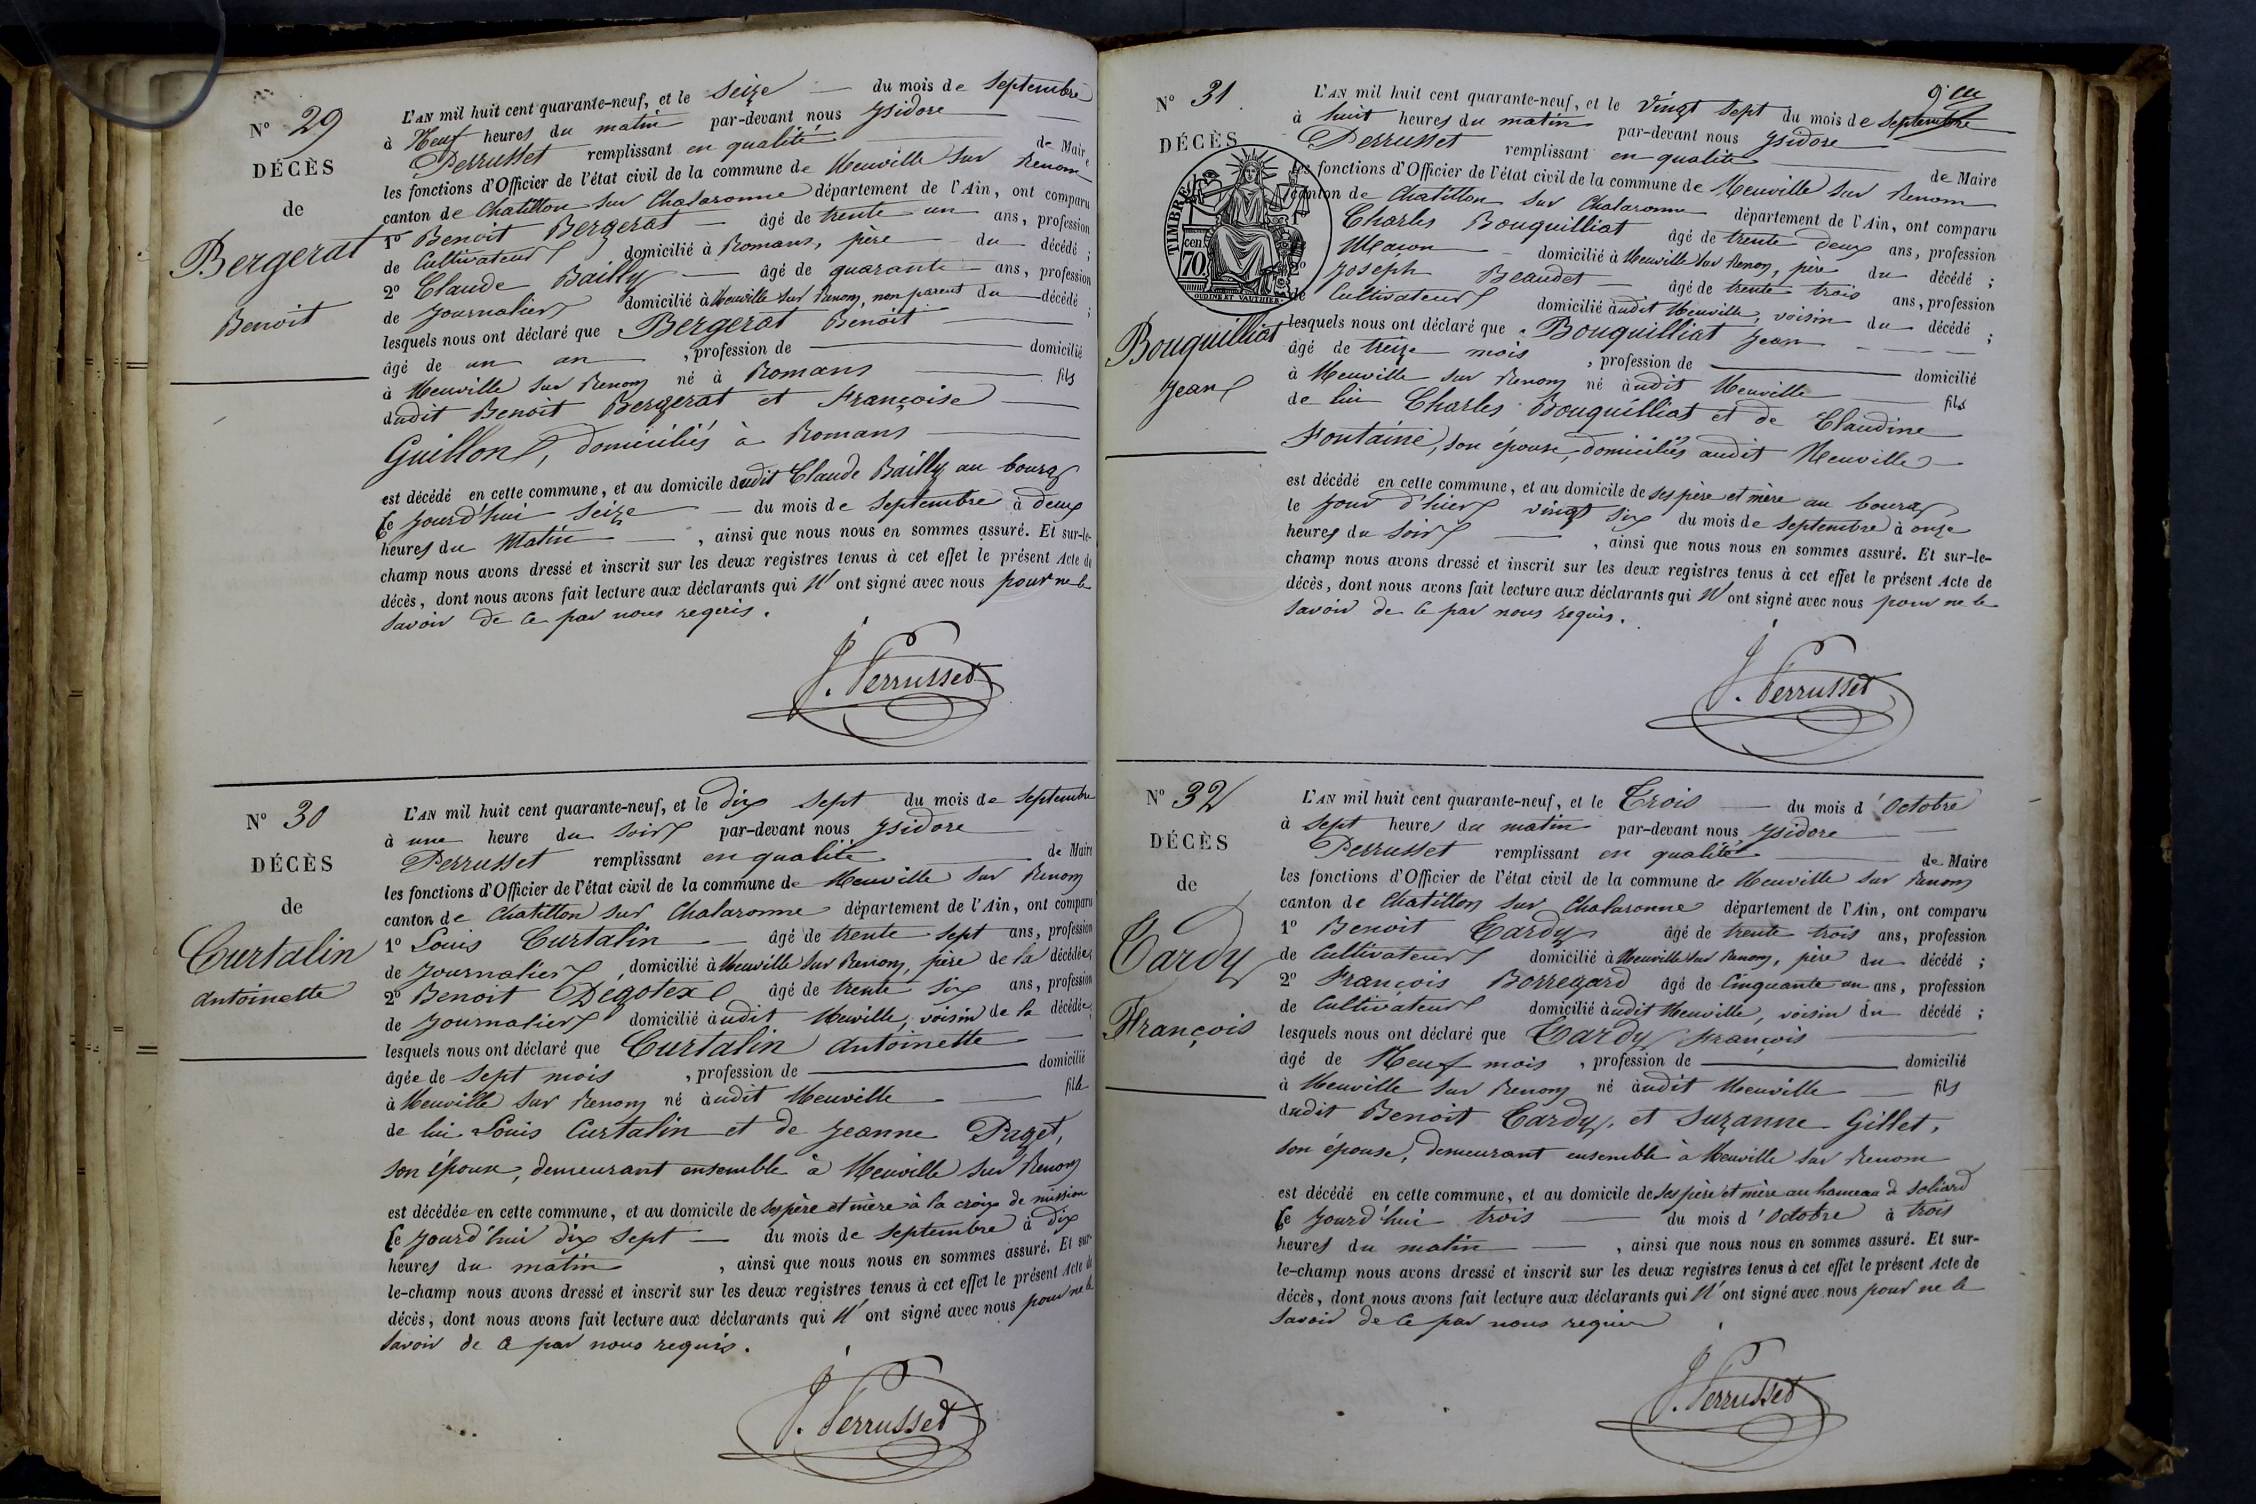 N° 29
DÉCÈS
de
Bergerat
Benoit
L'AN mil huit cent quarante-neuf, et le seize du mois de septembre
à Neuf heures du matin par-devant nous Ysidore
Perrusset remplissant en qualité de Maire
les fonctions d'Officier de l'état civil de la commune de Neuville sur Renom
canton de Chatillon sur Chalaronne département de l'Ain, ont comparu
1° Benoit Bergerat âgé de trente un ans, profession
de Cultivateur domicilié à Romans, père du décédé ;
2° Claude Bailly âgé de quarante ans, profession
de Journalier domicilié à Neuville sur Renom, non parent du décédé ;
lesquels nous ont déclaré que Bergerat Benoit
âgé de un an , profession de domicilié
à Neuville sur Renom né à Romans fils
dudit Benoit Bergerat et Françoise
Guillon, domiciliés à Romans
est décédé en cette commune, et au domicile dudit Claude Bailly au bourg
le jourd'hui seize du mois de septembre à deux
heures du matin , ainsi que nous nous en sommes assuré. Et sur-le-
champ nous avons dressé et inscrit sur les deux registres tenus à cet effet le présent Acte de
décès, dont nous avons fait lecture aux déclarants qui N'ont signé avec nous pour ne le
savoir de ce par nous requis.
J. Perrusset
N° 30
DÉCÈS
de
Curtalin
antoinette
L'AN mil huit cent quarante-neuf, et le dix sept du mois de septembre
à une heure du soir par-devant nous Ysidore
Perrusset remplissant en qualité de Maire
les fonctions d'Officier de l'état civil de la commune de Neuville sur Renom
canton de Chatillon sur Chalaronne département de l'Ain, ont comparu
1° Louis Curtalin âgé de trente sept ans, profession
de Journalier, domicilié à Neuville sur Renom, père de la décédée ;
2° Benoit Degotex âgé de trente six ans, profession
de Journalier domicilié audit Neuville, voisin de la décédée ;
lesquels nous ont déclaré que Curtalin antoinette
âgée de sept mois , profession de domicilié
à Neuville sur Renom né audit Neuville fille
de lui Louis Curtalin et de Jeanne Paget,
son épouse, demeurant ensemble à Neuville sur Renom
est décédée en cette commune, et au domicile de ses père et mère à la croix de mission
le jourd'hui dix sept du mois de septembre à dix
heures du matin , ainsi que nous nous en sommes assuré. Et sur-
le-champ nous avons dressé et inscrit sur les deux registres tenus à cet effet le présent Acte de
décès, dont nous avons fait lecture aux déclarants qui N'ont signé avec nous pour ne le
savoir de ce par nous requis.
J. Perrusset
N° 31
DÉCÈS
TIMBRE
70 cen
OUDINE ET VAUTHIER
Bouquilliat
Jean
L'AN mil huit cent quarante-neuf, et le vingt sept du mois de septembre
à huit heures du matin par-devant nous Ysidore
Perrusset remplissant en qualité de Maire
les fonctions d'Officier de l'état civil de la commune de Neuville sur Renom
canton de Chatillon sur Chalaronne département de l'Ain, ont comparu
1° Charles Bouquilliat âgé de trente deux ans, profession
de Maçon domicilié à Neuville sur Renom, père du décédé ;
2° Joseph Beaudet âgé de trente trois ans, profession
de Cultivateur domicilié audit Neuville, voisin du décédé ;
lesquels nous ont déclaré que Bouquilliat Jean
âgé de treize mois , profession de domicilié
à Neuville sur Renom né audit Neuville fils
de lui Charles Bouquilliat et de Claudine
Fontaine, son épouse, domiciliés audit Neuville
est décédé en cette commune, et au domicile de ses père et mère au bourg
le jour d'hier vingt six du mois de septembre à onze
heures du soir , ainsi que nous nous en sommes assuré. Et sur-le-
champ nous avons dressé et inscrit sur les deux registres tenus à cet effet le présent Acte de
décès, dont nous avons fait lecture aux déclarants qui N'ont signé avec nous pour ne le
savoir de ce par nous requis.
J. Perrusset
N° 32
DÉCÈS
de
Cardy
François
L'AN mil huit cent quarante-neuf, et le Trois du mois d'Octobre
à sept heures du matin par-devant nous Ysidore
Perrusset remplissant en qualité de Maire
les fonctions d'Officier de l'état civil de la commune de Neuville sur Renom
canton de Chatillon sur Chalaronne département de l'Ain, ont comparu
1° Benoit Cardy âgé de trente trois ans, profession
de Cultivateur domicilié à Neuville sur Renom, père du décédé ;
2° François Borregard âgé de Cinquante un ans, profession
de Cultivateur domicilié audit Neuville, voisin du décédé ;
lesquels nous ont déclaré que Cardy François
âgé de Neuf mois , profession de domicilié
à Neuville sur Renom né audit Neuville fils
dudit Benoit Cardy, et Suzanne Gillet,
son épouse, demeurant ensemble à Neuville sur Renom
est décédé en cette commune, et au domicile de ses père et mère au hameau de Soliard
le jourd'hui trois du mois d'Octobre à trois
heures du matin , ainsi que nous nous en sommes assuré. Et sur-
le-champ nous avons dressé et inscrit sur les deux registres tenus à cet effet le présent Acte de
décès, dont nous avons fait lecture aux déclarants qui N'ont signé avec nous pour ne le
savoir de ce par nous requis
J. Perrusset